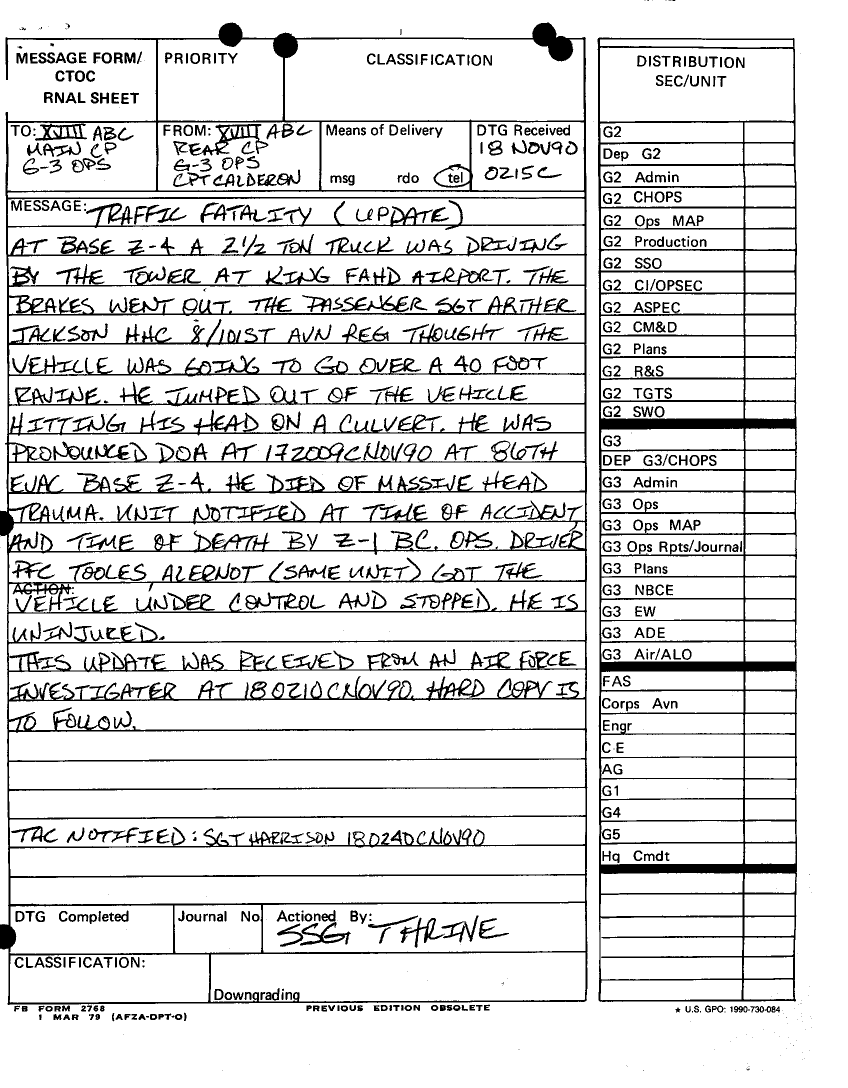 MESSAGE FORM/
CTOC
RNAL SHEET
PRIORITY
CLASSIFICATION
TO: XVIII ABC
MAIN CP
G-3 OPS
FROM: XVIII ABC
REAR CP
G-3 OPS
CPT CALDERON
Means of Delivery
msg rdo tel
DTG Received
18 NOV90
0215C
MESSAGE: TRAFFIC FATALITY (UPDATE)
AT BASE Z-4 A 2 1/2 TON TRUCK WAS DRIVING
BY THE TOWER AT KING FAHD AIRPORT. THE
BRAKES WENT OUT. THE PASSENGER SGT ARTHER
JACKSON HHC 8/101ST AVN REG THOUGHT THE
VEHICLE WAS GOING TO GO OVER A 40 FOOT
RAVINE. HE JUMPED OUT OF THE VEHICLE
HITTING HIS HEAD ON A CULVERT. HE WAS
PRONOUNCED DOA AT 172009CNOV90 AT 86TH
EVAC BASE Z-4. HE DIED OF MASSIVE HEAD
TRAUMA. UNIT NOTIFIED AT TIME OF ACCIDENT
AND TIME OF DEATH BY Z-1 B.C. OPS. DRIVER
PFC TOOLES, ALERNOT (SAME UNIT) GOT THE
ACTION:
VEHICLE UNDER CONTROL AND STOPPED. HE IS
UNINJURED.
THIS UPDATE WAS RECEIVED FROM AN AIR FORCE
INVESTIGATER AT 180210CNOV90. HARD COPY IS
TO FOLLOW.
TAC NOTIFIED: SGT HARRISON 180240CNOV90
DTG Completed
Journal No.
Actioned By:
SSG THRINE
CLASSIFICATION:
Downgrading
FB FORM 2768
1 MAR 79 (AFZA-DPT-O)
PREVIOUS EDITION OBSOLETE
DISTRIBUTION
SEC/UNIT
G2
Dep G2
G2 Admin
G2 CHOPS
G2 Ops MAP
G2 Production
G2 SSO
G2 CI/OPSEC
G2 ASPEC
G2 CM&D
G2 Plans
G2 R&S
G2 TGTS
G2 SWO
G3
DEP G3/CHOPS
G3 Admin
G3 Ops
G3 Ops MAP
G3 Ops Rpts/Journal
G3 Plans
G3 NBCE
G3 EW
G3 ADE
G3 Air/ALO
FAS
Corps Avn
Engr
C E
AG
G1
G4
G5
Hq Cmdt
★ U.S. GPO: 1990-730-084